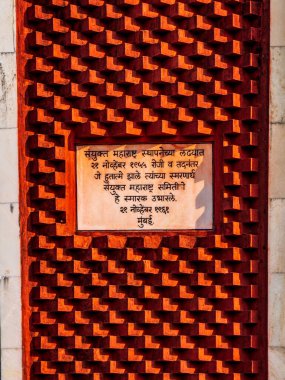 संयुक्त महाराष्ट्र स्थापनेच्या लढ्यात
२१ नोव्हेंबर १९५५ रोजी व तदनंतर
जे हुतात्मे झाले त्यांच्या स्मरणार्थ
संयुक्त महाराष्ट्र समितीने
हे स्मारक उभारले.
२१ नोव्हेंबर १९६१
मुंबई.